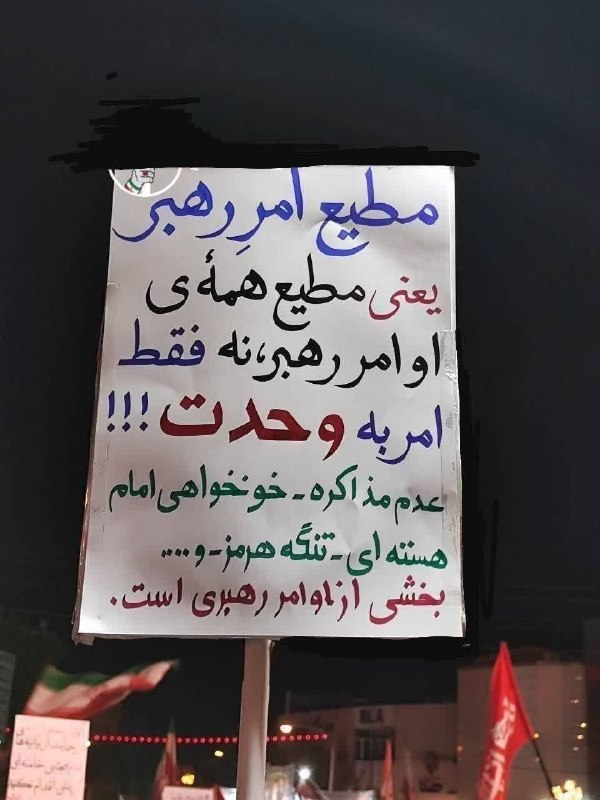 مطیع امرِ رهبر
یعنی مطیع همهٔ ی
اوامر رهبر، نه فقط
امر به وحدت!!!
عدم مذاکره - خونخواهی امام
هسته ای - تنگه هرمز - و....
بخشی از اوامر رهبری است.